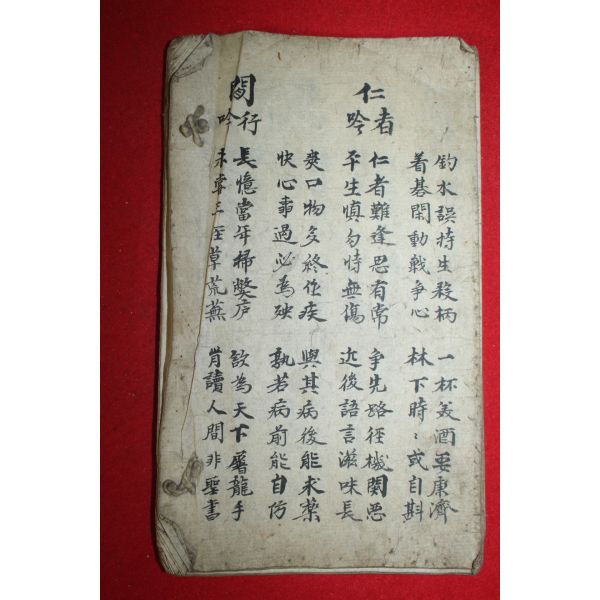 釣水誤持生殺柄
着碁閑動戰爭心
一杯美酒要康濟
林下時〻或自斟
仁者吟
仁者難逢思有常
平生慎勿恃無傷
争先路徑機関惡
近後語言滋味長
爽口物多終作疾
快心事過必為殃
與其病後能求藥
孰若病前能自防
閒行吟
長憶當年掃弊庐
未三至草荒蕪
欲為天下屠龍手
肯讀人間非聖書